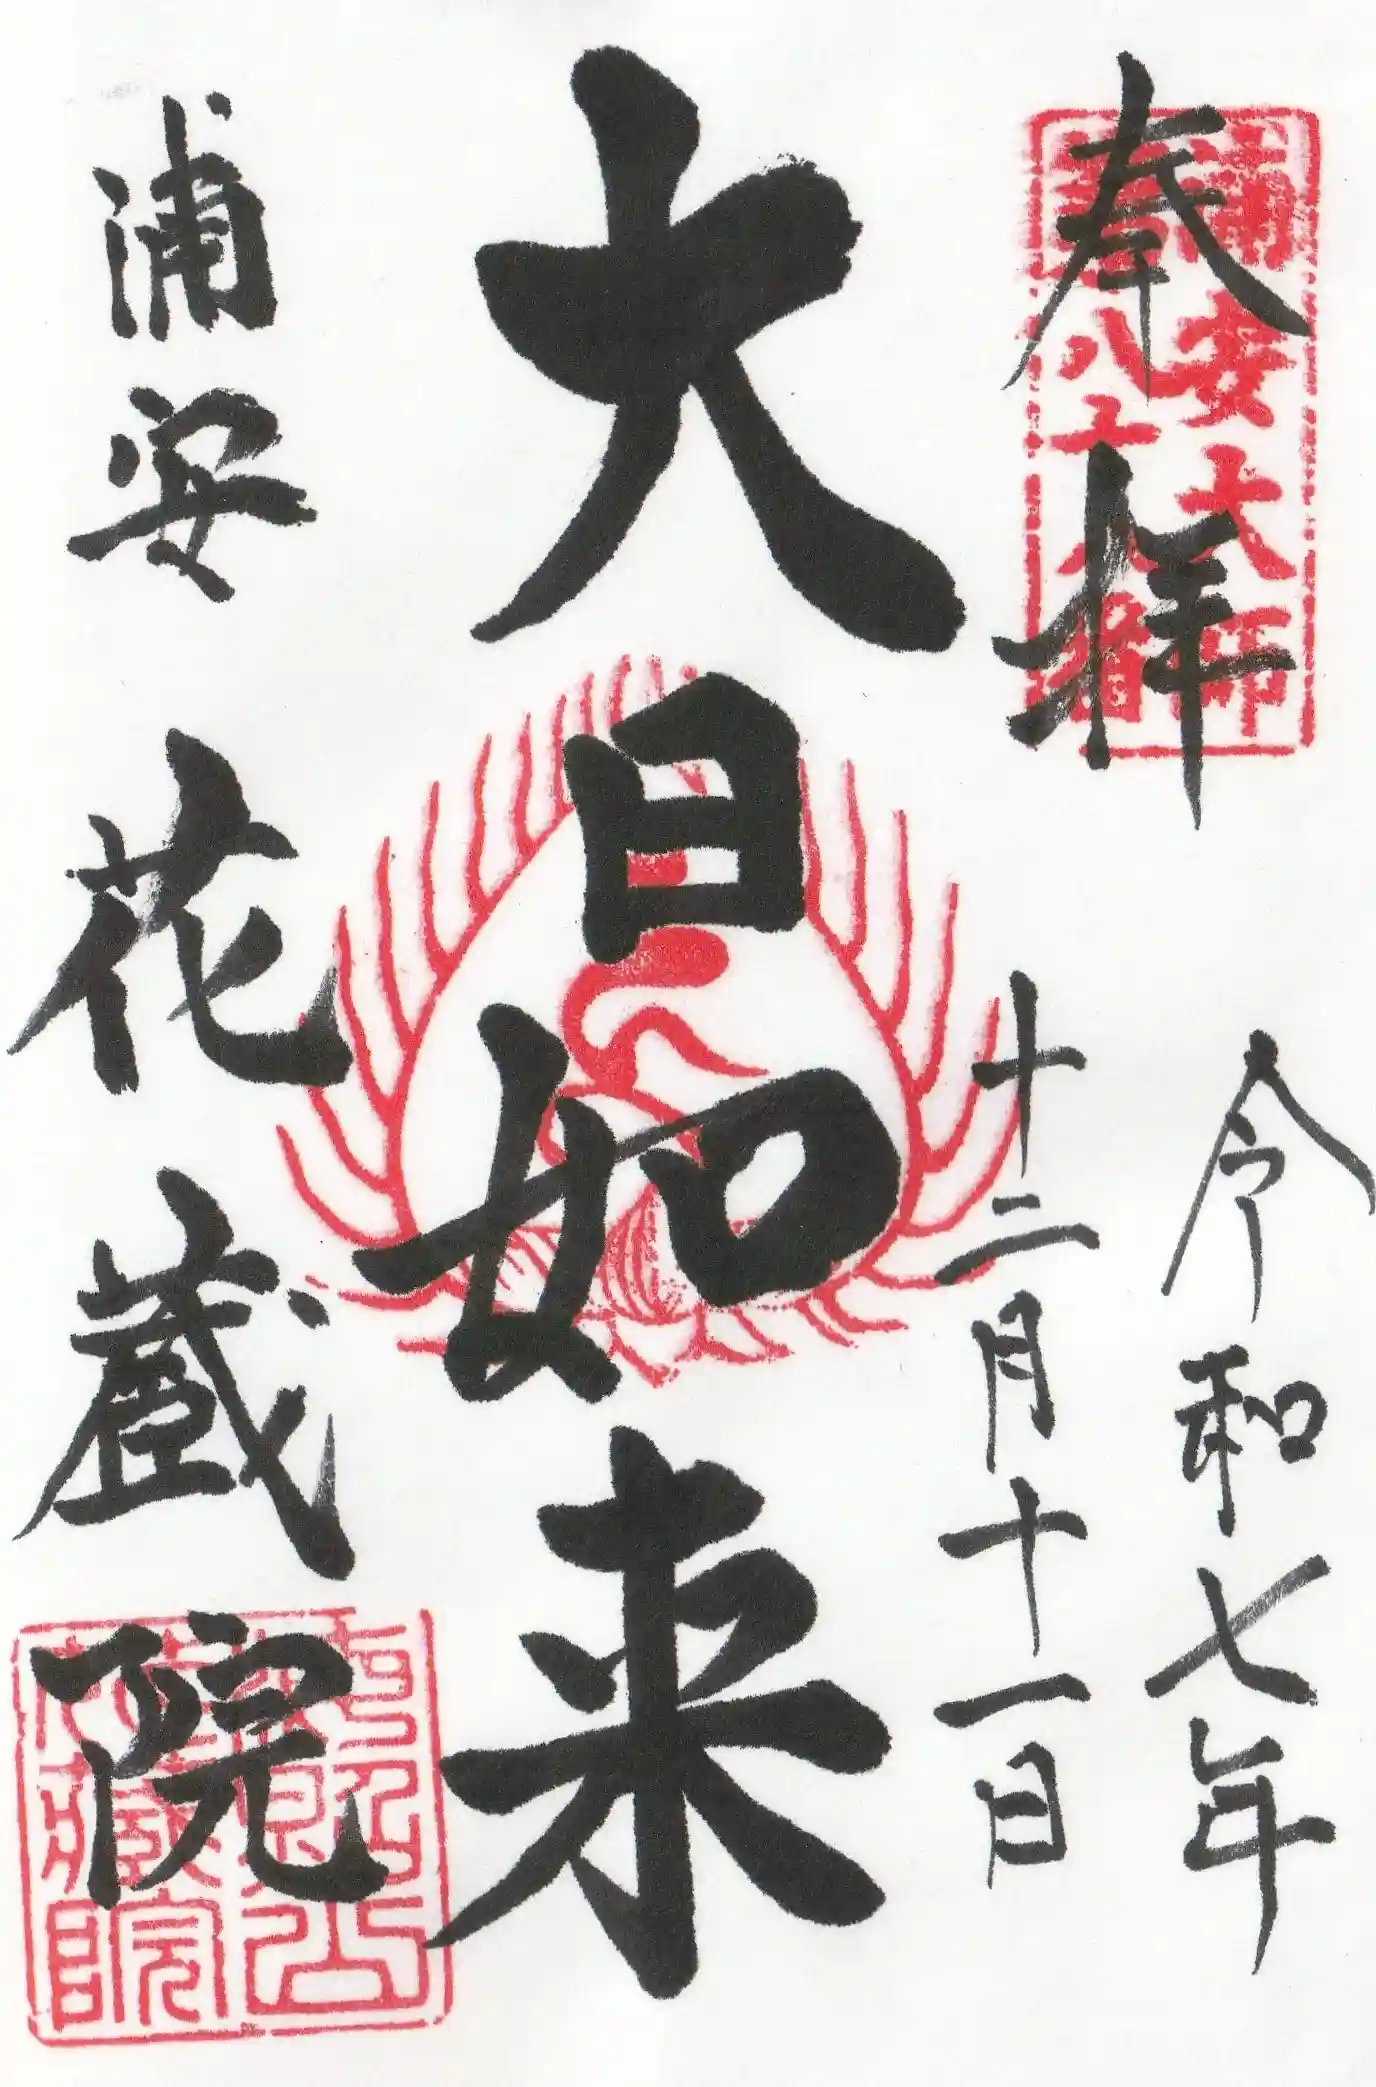 奉拝
浦安大師
八十八番
令和七年
十二月十一日
大日如来
浦安 花蔵院
花蔵院